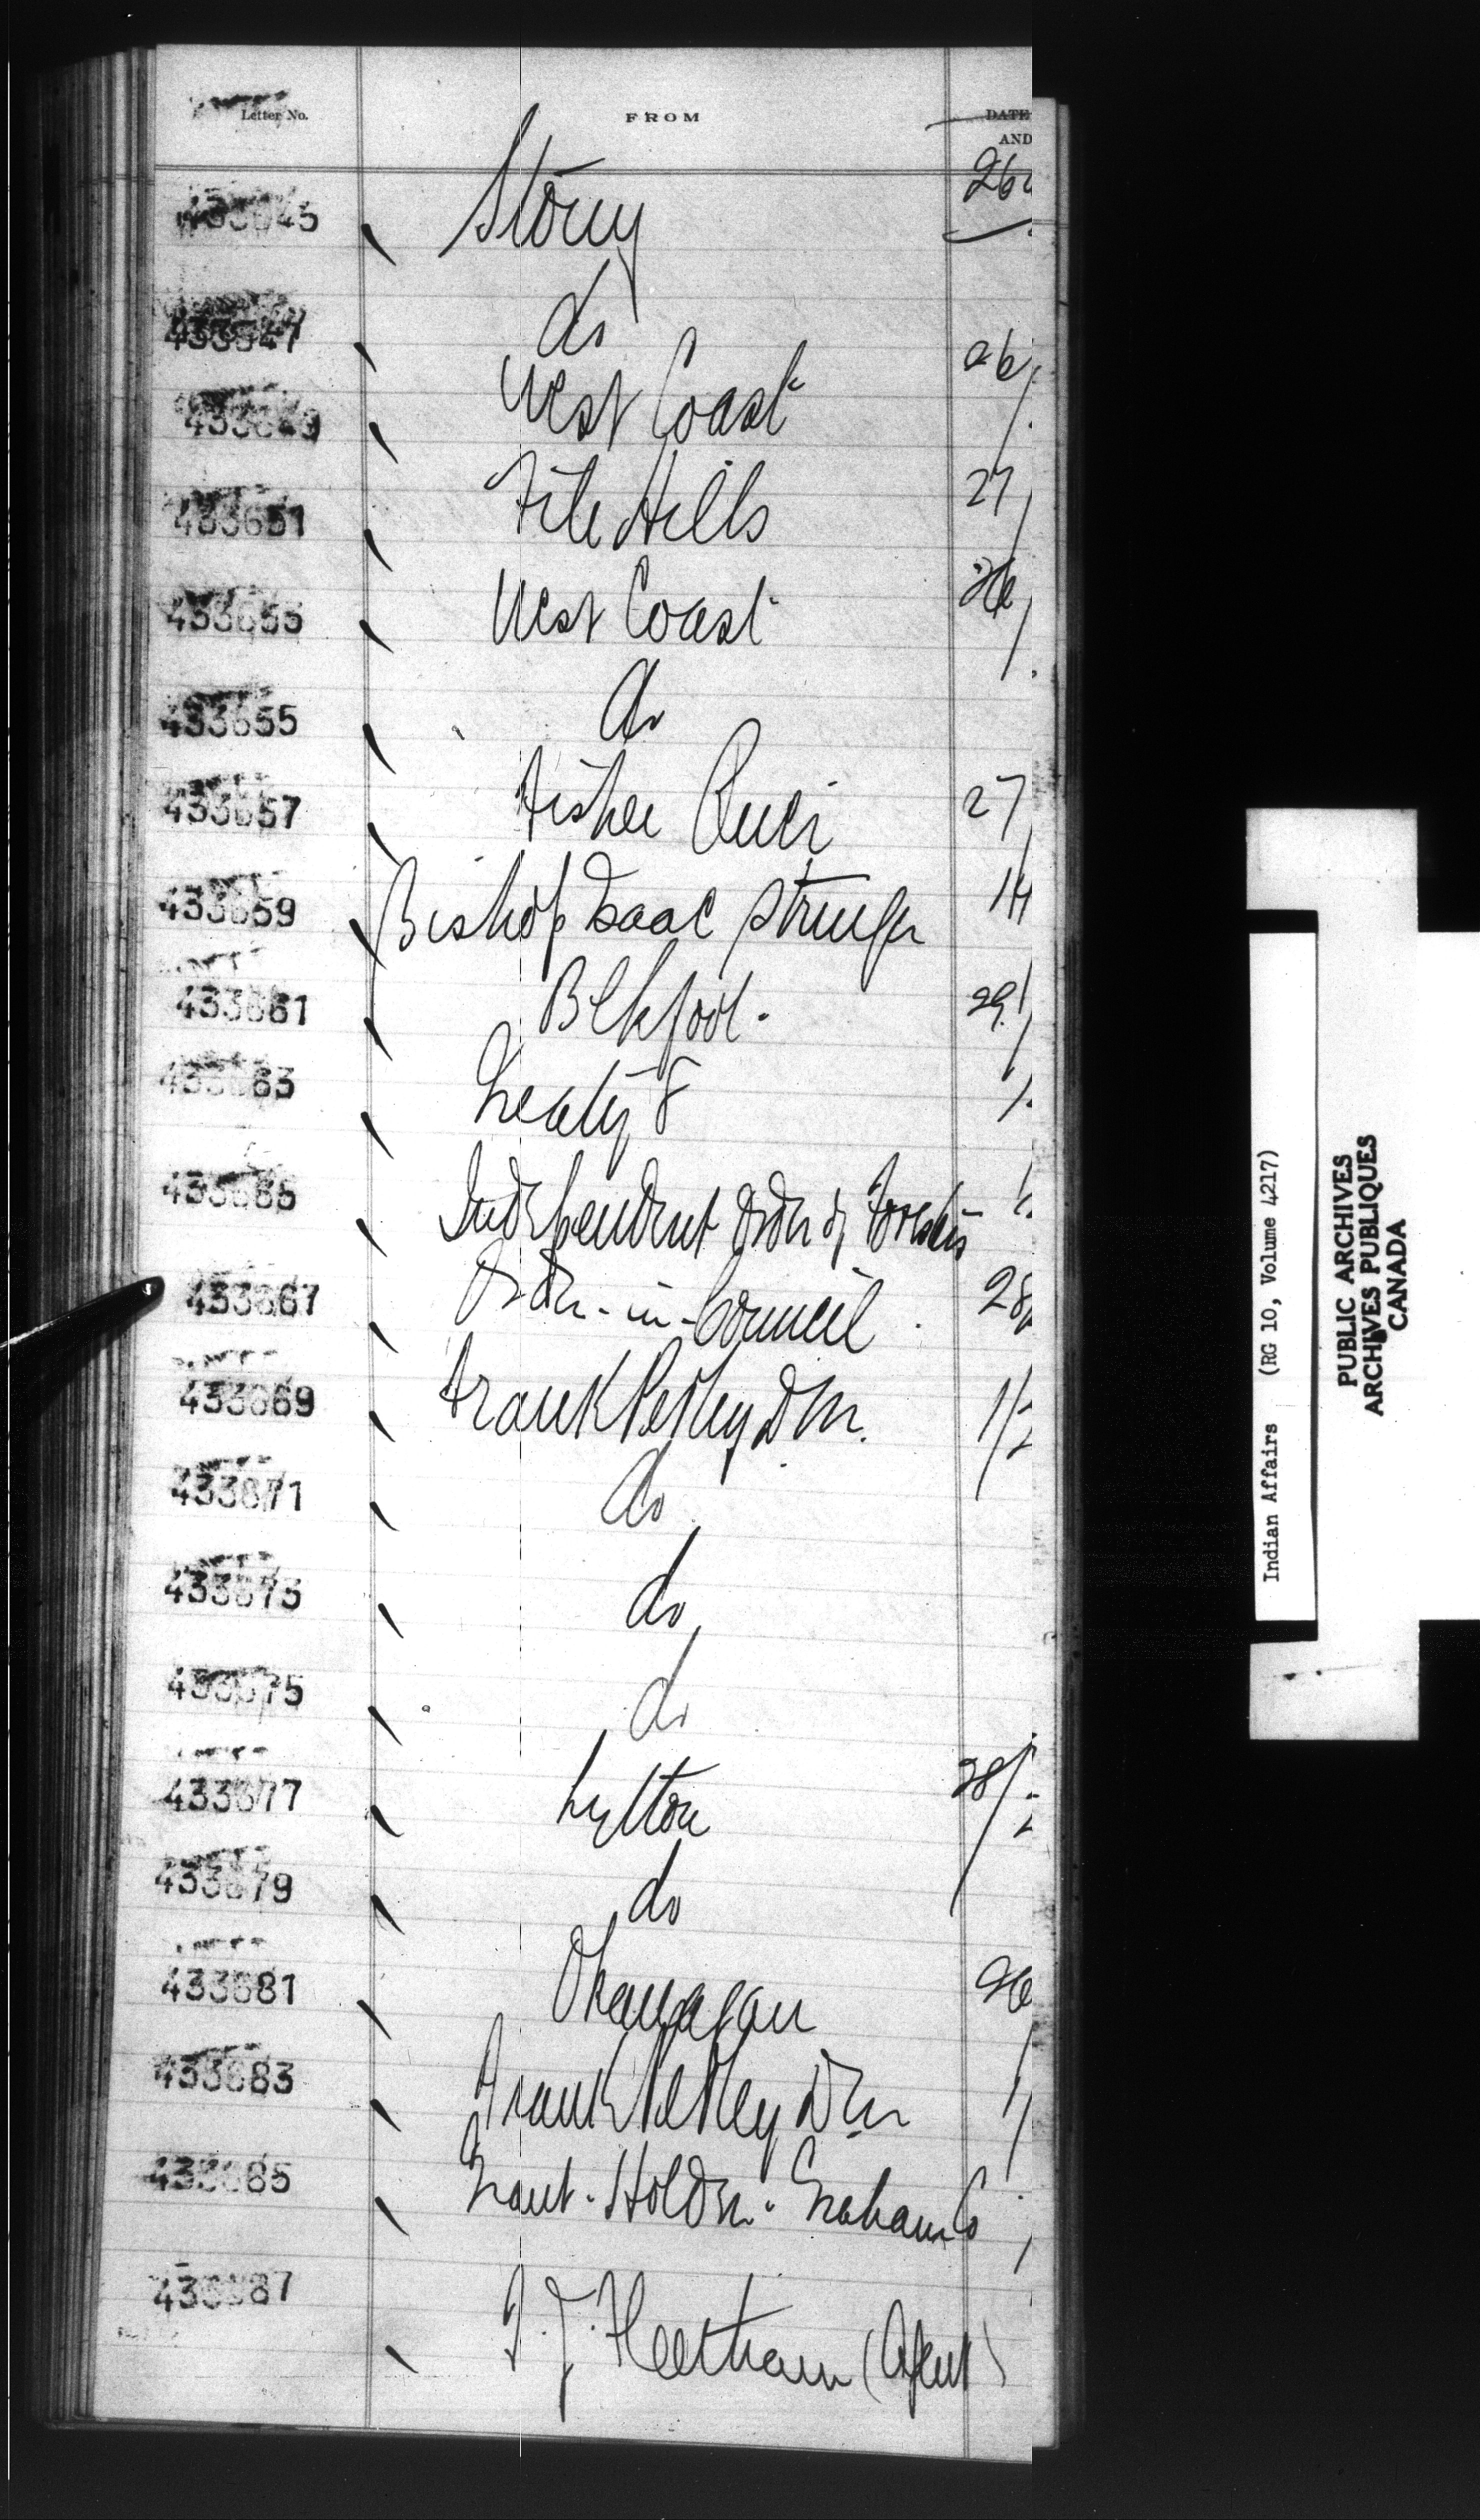 Letter No. FROM DATE AND
433645 Stony 26
433647 do
433649 West Coast 26/
433651 File Hills 27/
433653 West Coast 26/
433655 do
433657 Fisher River 27/
433659 Bishop Isaac Stringer 14
433661 Blkfoot. 29/
433663 Treaty 8
433665 Independent Order of Foresters
433667 Order-in-Council 28/
433669 Frank Pedley D M. 1/2
433671 do
433673 do
433675 do
433677 Lytton 28/2
433679 do
433681 Okanagan 26
433683 Frank Pedley D M 1/
433685 Grant. Holden. Graham Co
433687 Fleetham (Agent)
Indian Affairs (RG 10, Volume 4217)
PUBLIC ARCHIVES
ARCHIVES PUBLIQUES
CANADA